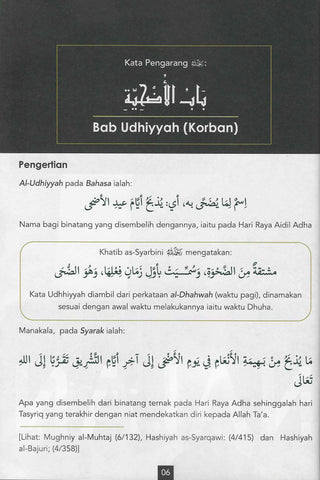 Kata Pengarang ﷀ:
بَابُ الْأُضْحِيَّةِ
Bab Udhiyyah (Korban)
Pengertian
Al-Udhiyyah pada Bahasa ialah:
اِسْمٌ لِمَا يُضَحَّى بِهِ، أَيْ: يُذْبَحُ أَيَّامَ عِيدِ الْأَضْحَى
Nama bagi binatang yang disembelih dengannya, iaitu pada Hari Raya Aidil Adha
Khatib as-Syarbini mengatakan:
مشتقةٌ مِنَ الضَّحْوَةِ، وَسُمِّيَتْ بِأَوَّلِ زَمَانِ فِعْلِهَا، وَهُوَ الضُّحَى
Kata Udhhiyyah diambil dari perkataan al-Dhahwah (waktu pagi), dinamakan
sesuai dengan awal waktu melakukannya iaitu waktu Dhuha.
Manakala, pada Syarak ialah:
مَا يُذْبَحُ مِنْ بَهِيمَةِ الْأَنْعَامِ فِي يَوْمِ الْأَضْحَى إِلَى آخِرِ أَيَّامِ التَّشْرِيقِ تَقَرُّبًا إِلَى اللهِ
تَعَالَى
Apa yang disembelih dari binatang ternak pada Hari Raya Adha sehinggalah hari
Tasyriq yang terakhir dengan niat mendekatkan diri kepada Allah Ta'a.
[Lihat: Mughniy al-Muhtaj (6/132), Hashiyah as-Syarqawi: (4/415) dan Hasyiah
al-Bajuri; (4/358)]
06